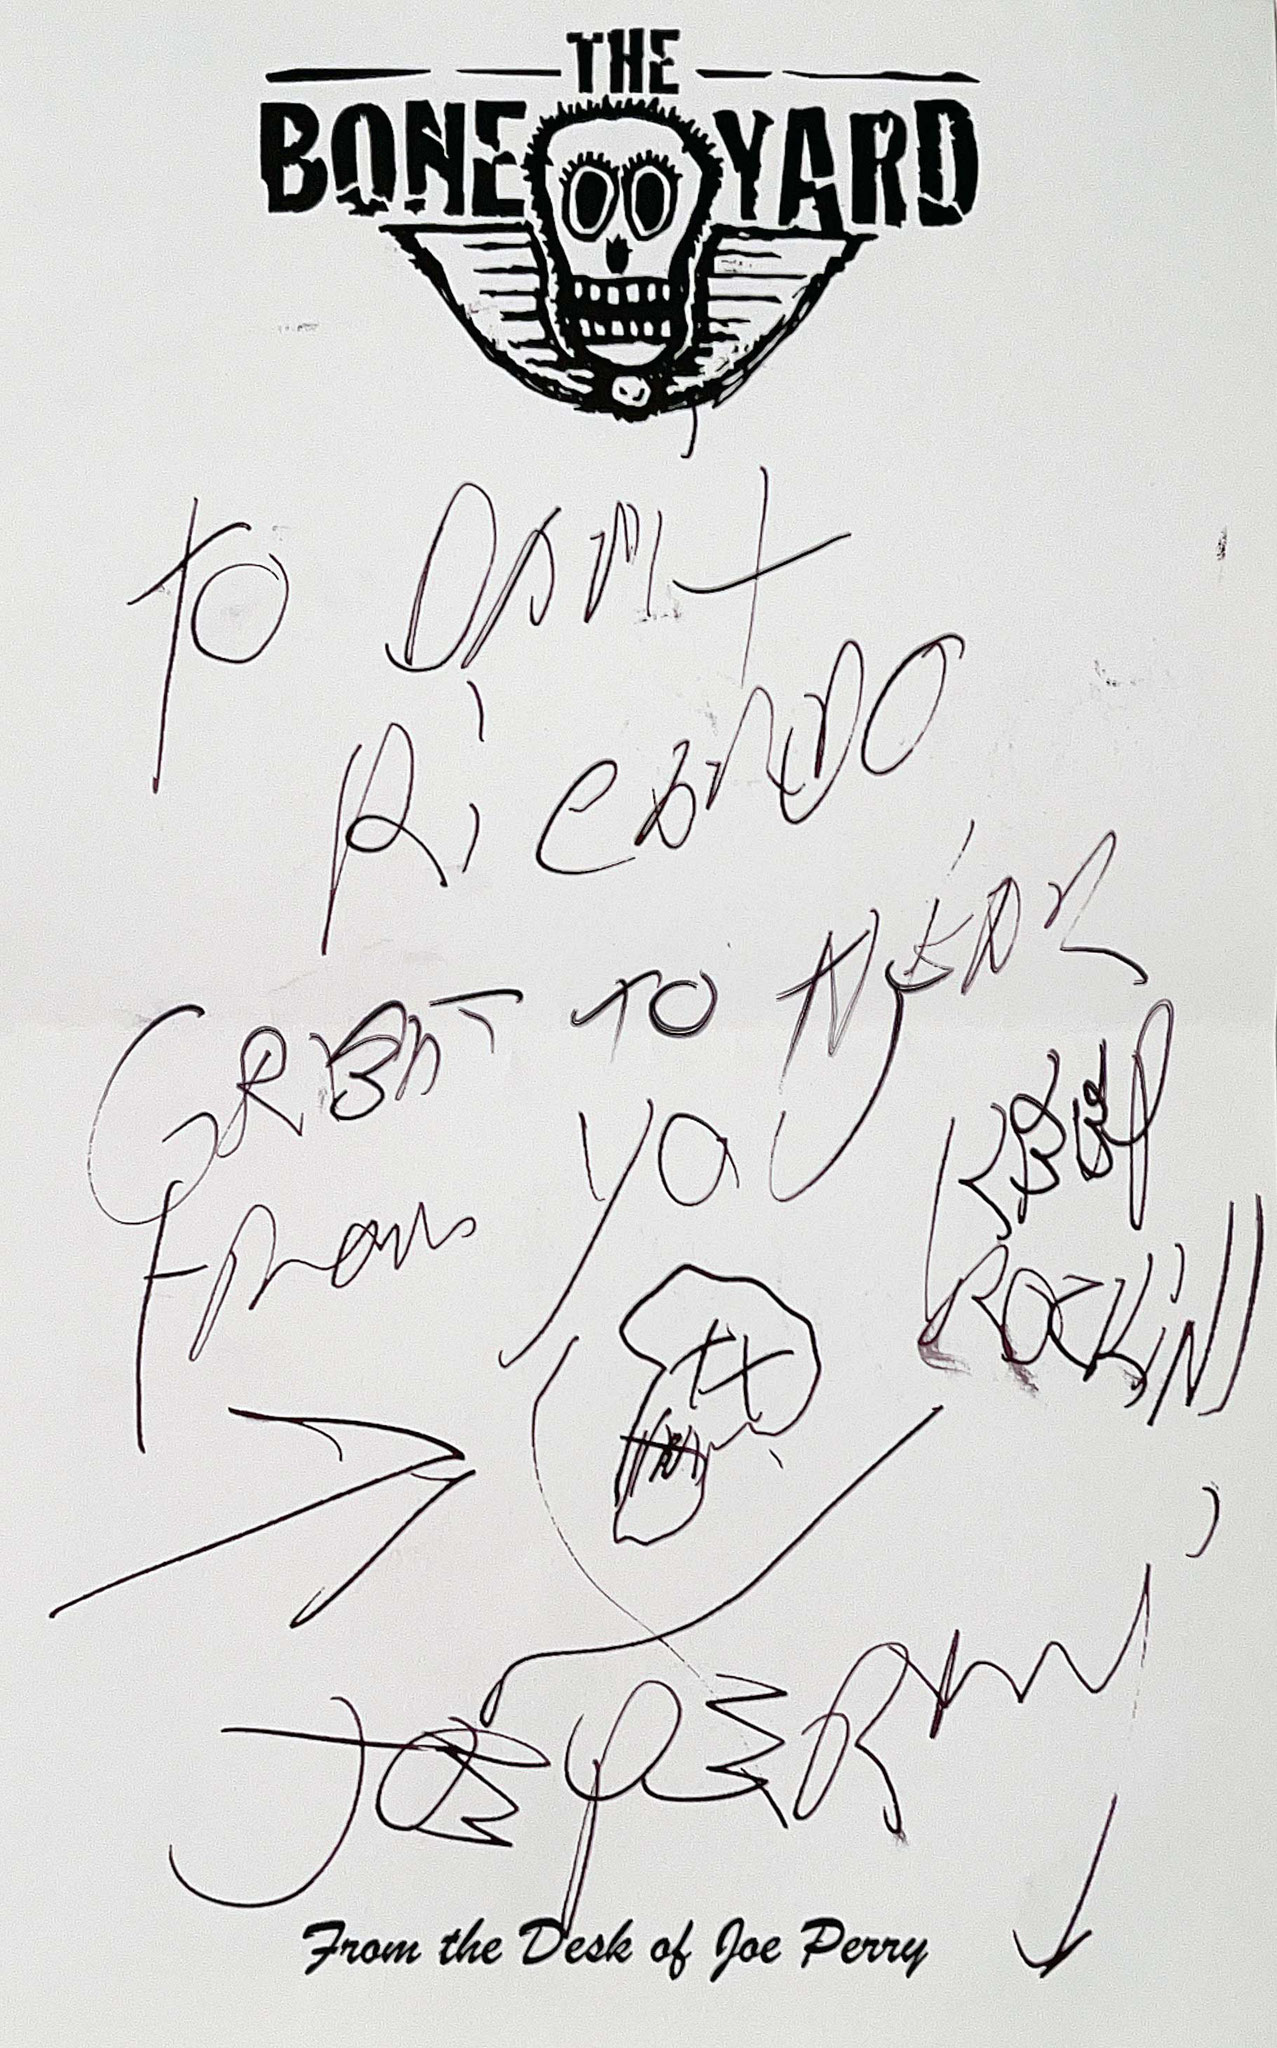 THE
BONE YARD
TO DANI +
RiCARDO
GREAT TO HEAR
FROM YA
KEEP
ROCKiN!!
JOE PERRY
From the Desk of Joe Perry